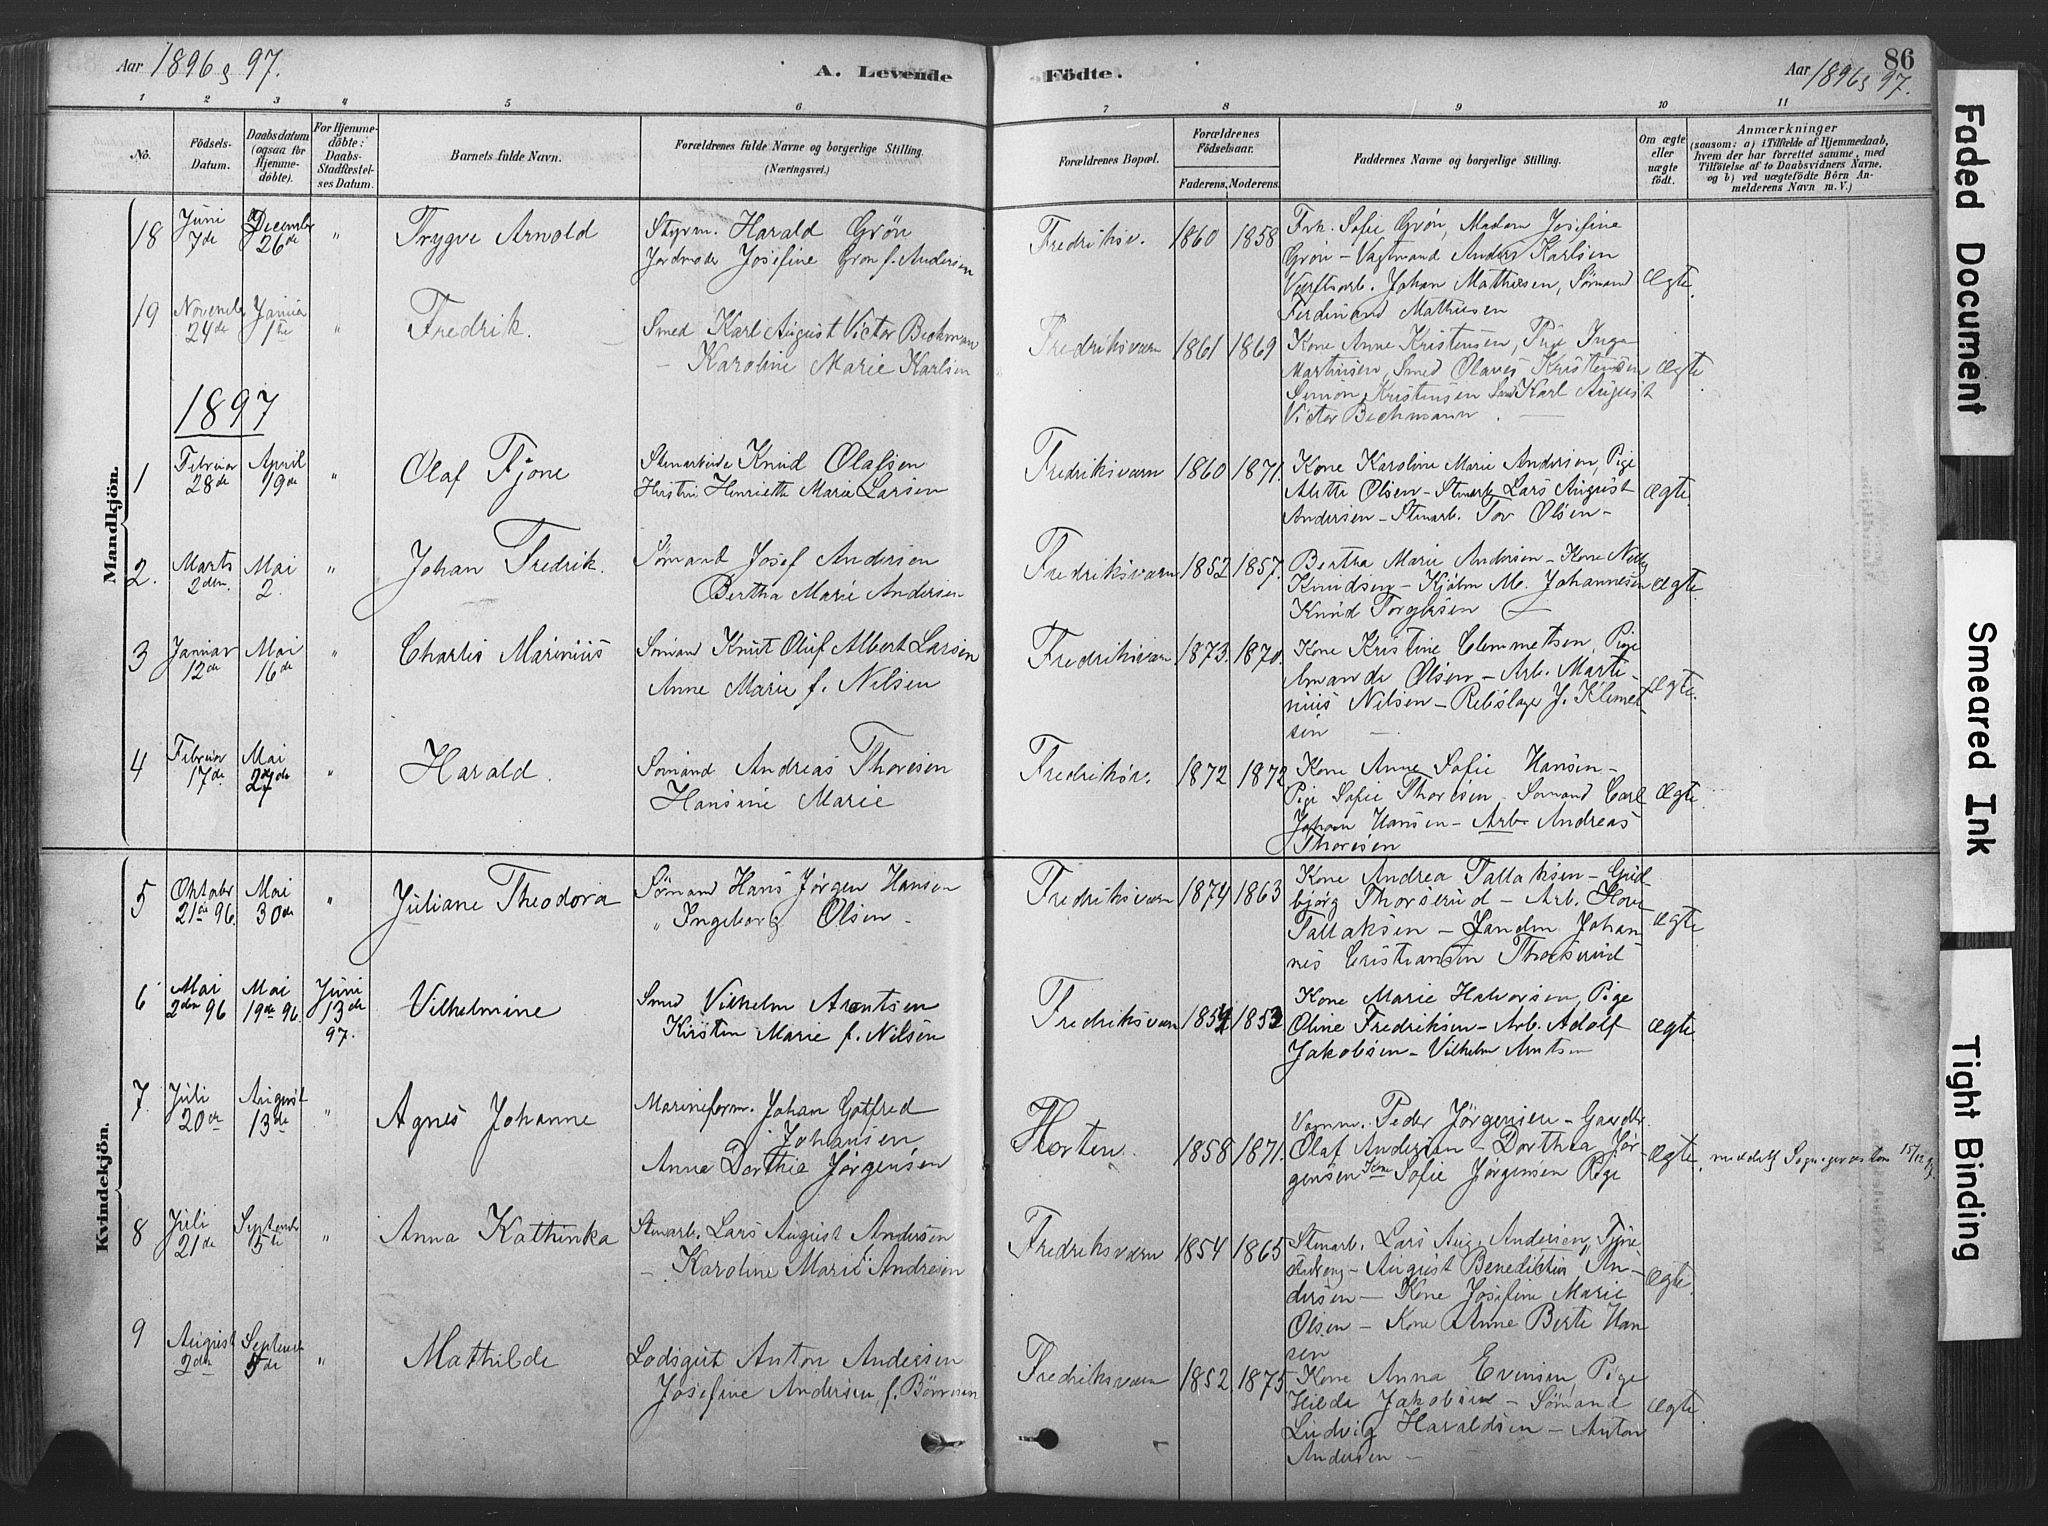 Aar 1896 & 97.
A. Levende
Födte.
86
Aar 1896 & 97.
1 2 3 4 5 6 7 8 9 10 11
No.
Födsels-Datum.
Daabsdatum (ogsaa for Hjemme-döbte).
For Hjemme-döbte: Daabs-Stadfæstel-ses Datum.
Barnets fulde Navn.
Forældrenes fulde Navne og borgerlige Stilling. (Næringsvei.)
Forældrenes Bopæl.
Forældrenes Födselsaar.
Faderens. Moderens.
Faddernes Navne og borgerlige Stilling.
Om ægte eller uægte født.
Anmærkninger
(saasom: a) i Tilfælde af Hjemmedaab,
hvem der har forrettet samme, med
Tilföielse af to Daabsvidners Navne,
og b) ved uægtefödte Börn An-
melderens Navn m. V.)
Mandkjön.
18 Juni 7de December 26de " Trygve Arnold
Styrm. Harald Grön
Jordmoder Josefine Grøn f. Andersen
Fredriksv. 1860 1858
Frk. Sofie Grøn, Madam Josefine
Grøn - Vagtmand Anders Karlsen
Værftsarb. Johan Mathisen, Sømand
Ferdinand Mathisen
Ægte.
19 November 24de Januar 1ste " Fredrik.
Smed Karl August Victor Beckman
- Karoline Marie Karlsen
Fredriksværn 1861 1869
Kone Anne Kristensen, Pige Inga
Martinsen, Smed Olaves Kristensen
Simon Kristensen Karl August
Victor Bechmann.
Ægte
1897
1 Februar 28de April 19de " Olaf Fjone
Stenarbeide Knud Olafsen
Henriette Marie Larsen
Fredriksværn 1860 1871.
Kone Karoline Marie Andersen, Pige
Alette Olsen - Stenarb. Lars August
Andersen - Stenarb. Tov Olsen -
Ægte.
2. Marts 2den Mai 2. " Johan Fredrik.
Sømand Josef Andersen
Bertha Marie Andersen
Fredriksværn 1852 1857.
Bertha Marie Andersen - Kone
Knudsen - M. Johannesen
Knud Torgersen
Ægte.
3 Januar 12de Mai 16de " Charles Marinius
Sømand Knut Oluf Albert Larsen
Anne Marie f. Nilsen
Fredriksværn 1873. 1870.
Kone Kristine Clemmetsen, Pige
Amanda Olsen - Arb. Marti-
nius Nilsen - Rebslager J. Klemet-
sen -
Ægte.
4 Februar 17de Mai 27de " Harald.
Sømand Andreas Thoresen
Hansine Marie
Fredriksv. 1872 1872
Kone Anne Sofie Hansen -
Pige Sofie Thoresen - Sømand Carl
Johan Hansen - Arb. Andreas
Thoresen
Ægte.
Kvindekjön.
5 Oktober 21de 96. Mai 30de " Juliane Theodora
Sømand Hans Jørgen Hansen
" Ingeborg Olsen -
Fredriksværn 1874 1863
Kone Andrea Tallaksen - Gud-
bjørg Thorserud - Arb.
Tallaksen - Johan-
nes Cristiansen Thorserud
Ægte
6 Mai 2den 96 Mai 19de 96. Juni 13de 97. Vilhelmine
Smed Vilhelm Arentsen
Kirsten Marie f. Nilsen
Fredriksværn 1854 1853
Kone Marie Halvorsen, Pige
Oline Fredriksen - Arb. Adolf
Jakobsen - Vilhelm Arntsen
Ægte.
7. Juli 20de August 13de " Agnes Johanne
Marineform. Johan Gotfred
Johansen
Anne Dorthie Jørgensen
Horten. 1858 1871.
Peder Jørgensen - Gaardbr.
Olaf Andersen - Dorthea Jør-
gensen Kone Sofie Jørgensen Pige
Ægte. meddelt Sognepræsten 15/12 97.
8 Juli 21de September 5te " Anna Kathinka
Stenarb. Lars August Andersen
- Karoline Marie Andresen
Fredriksværn 1854 1865
Stenarb. Lars Aug. Andersen,
- August Benediktus An-
dersen - Kone Josefine Marie
Olsen - Kone Anne Berte Han-
sen
Ægte.
9 August 2den September 5de " Mathilde
Lodsgut Anton Andersen
Josefine Andersen f. Børresen
Fredriksværn 1852 1875
- Kone Anna Evensen, Pige
Hilda Jakobsen - Sømand
Ludvig Haraldsen - Anton
Andersen -
Ægte.
Faded Document
Smeared Ink
Tight Binding